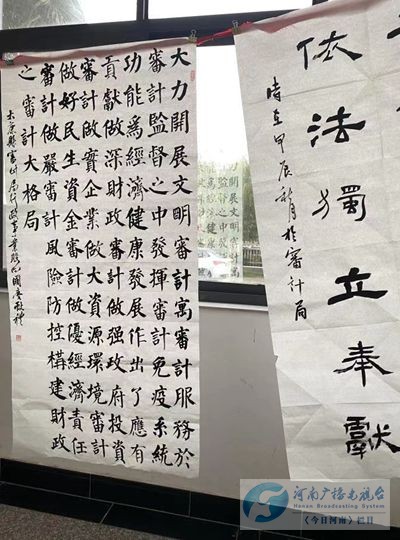 依法獨立奉獻
時在甲辰秋月於審計局
大力開展文明審計寓審計服務於
審計監督之中發揮審計免疫系統
功能爲經濟健康發展作出了應有
貢獻做深財政審計做强政府投資
審計做實企業做大資源環境審計
做好民生資金審計做優經濟責任
審計做嚴審計風險防控構建財政
之審計大格局
太康縣審計局行政事業股
河南广播电视台
Henan Broadcasting System
《今日河南》栏目